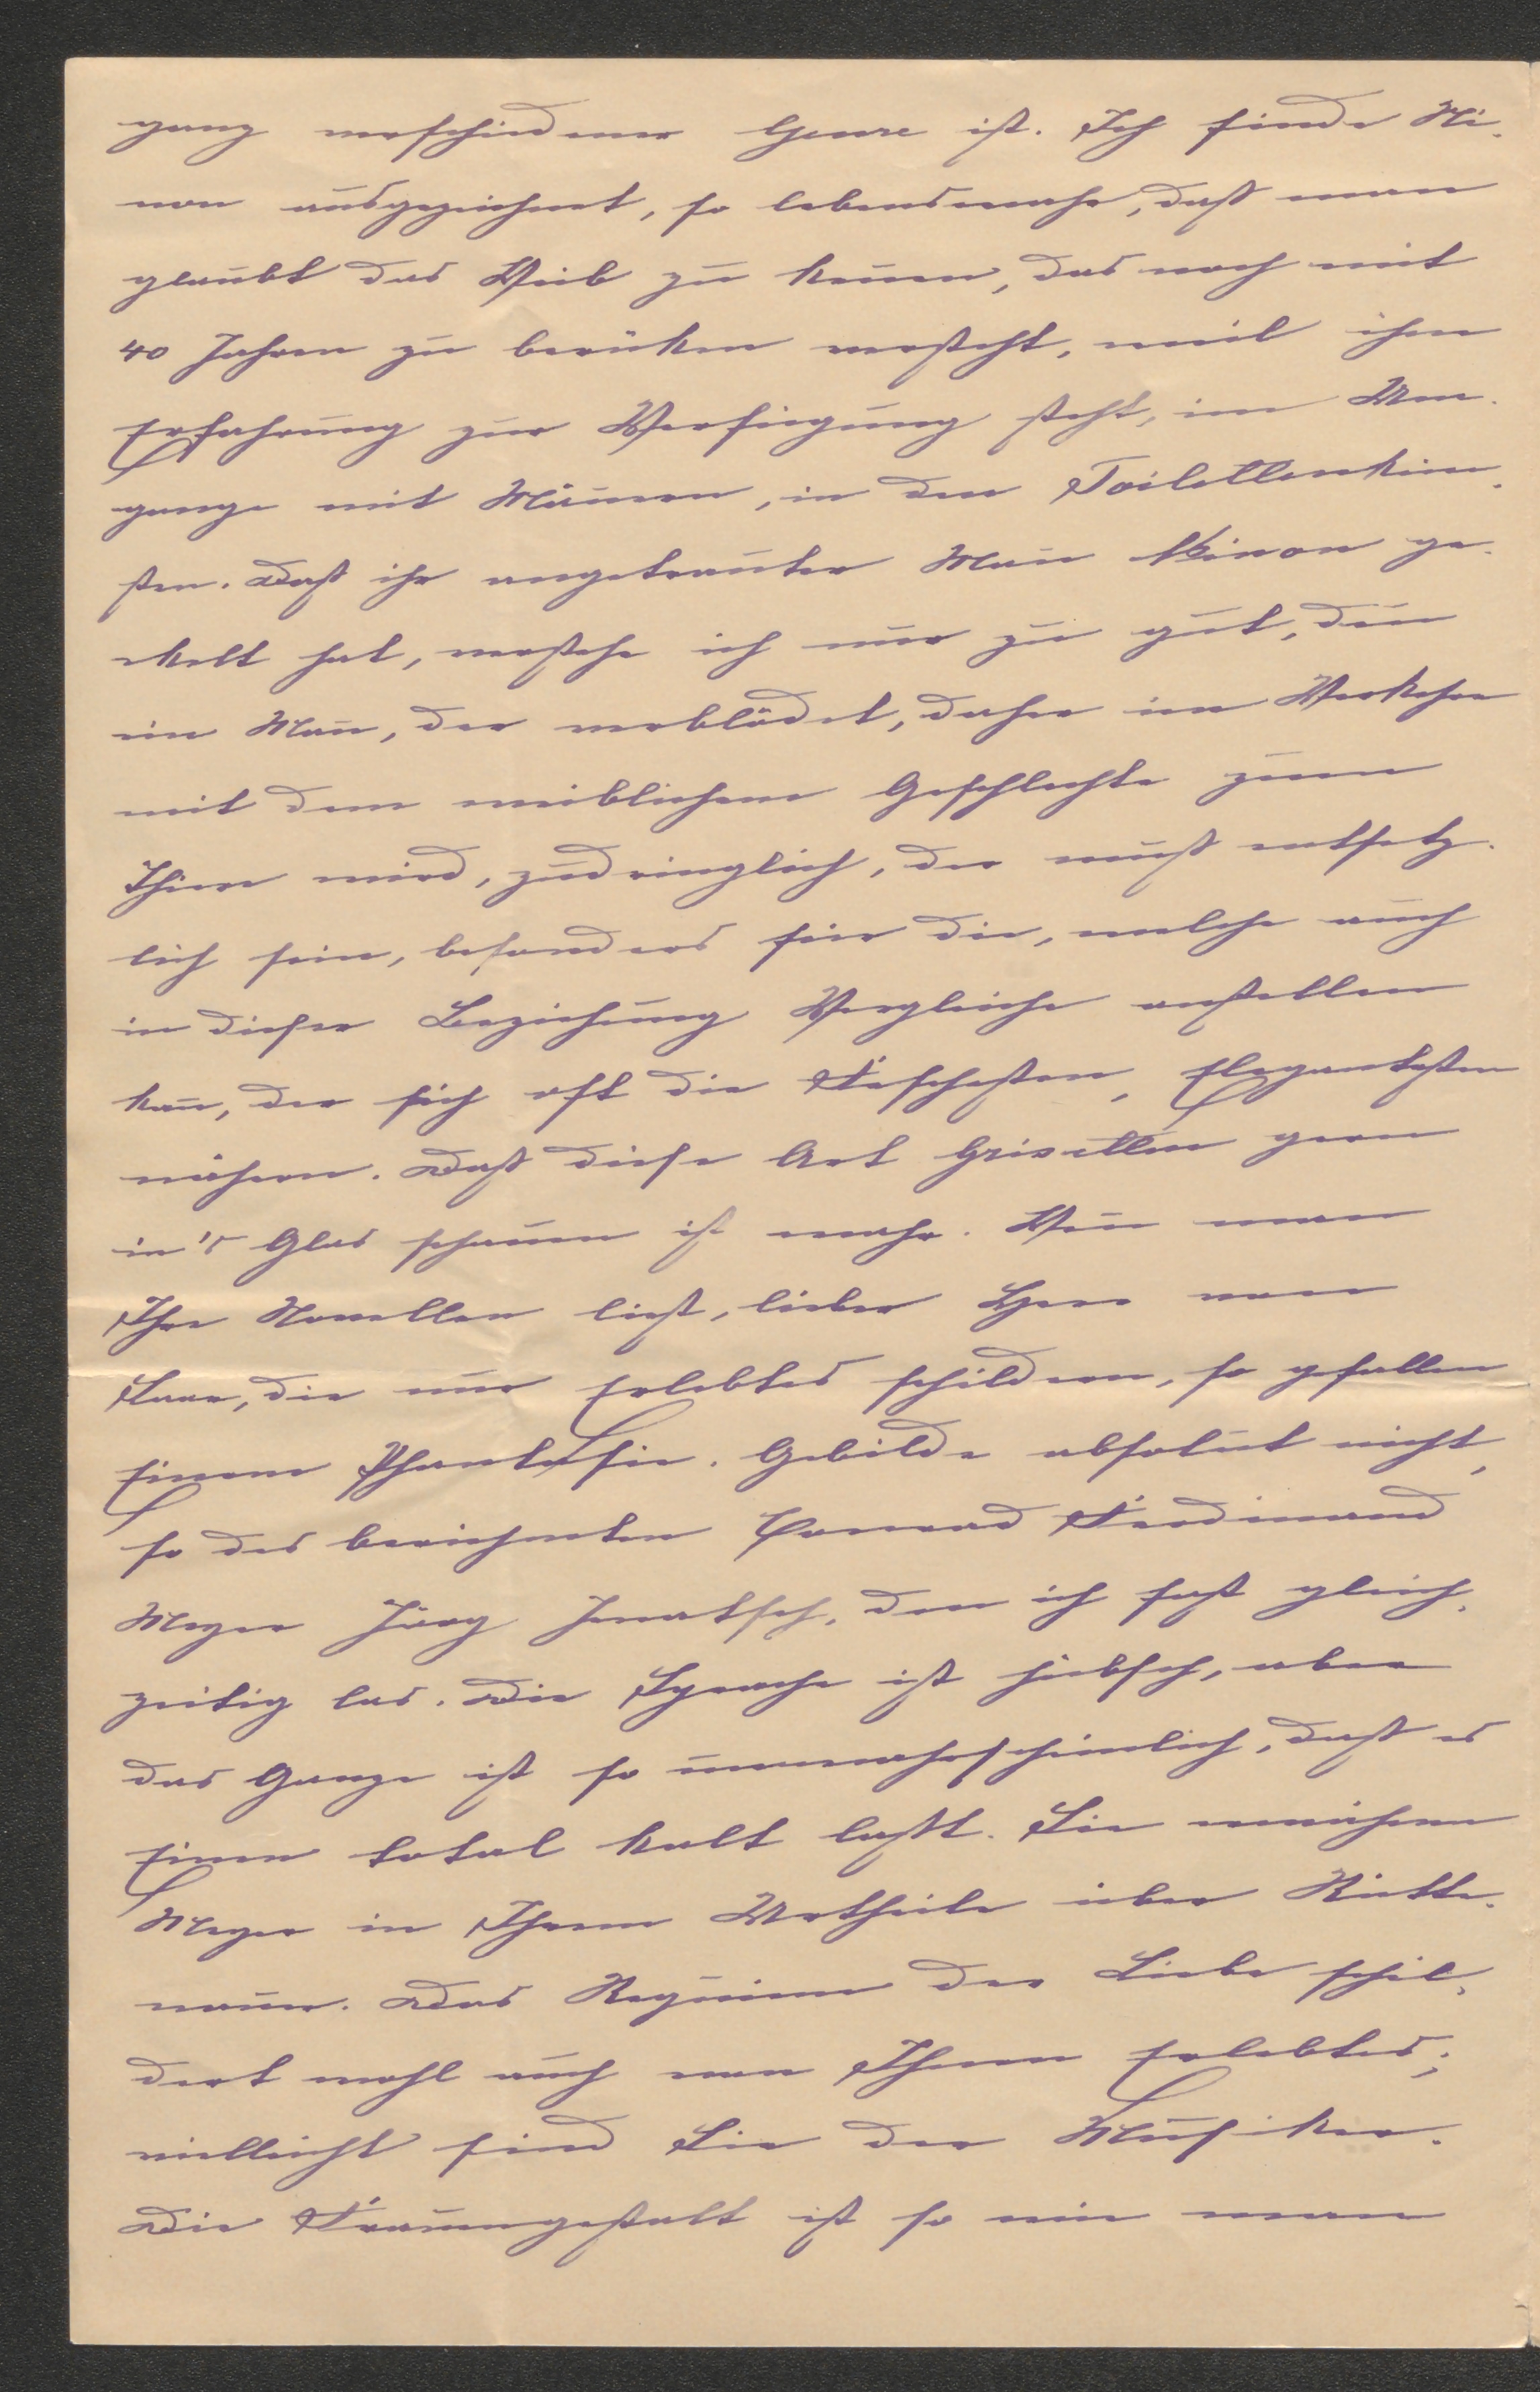 ganz verschiedener Genre ist. Ich finde Ni-
non ausgezeichnet, so lebenswahr, daß man
glaubt das Weib zu keñen, das noch mit
40 Jahren zu berüken versteht, weil ihm
Erfahrung zur Verfügung steht, im Um-
gange mit Mäñern, in den Toilettenkün-
sten. Daß ihr angetrauter Mañ Ninon ge-
ekelt hat, verstehe ich nur zu gut, deñ
ein Mañ, der verblödet, daher im Verkehre
mit dem weiblichem Geschlechte zum
Thier wird, zudringlich, der muß entsetz-
lich sein, besonders für die, welche auch
in dieser Beziehung Vergleiche anstellen
kañ, der sich oft die Feschesten, Elegantesten
nähern. Daß diese Art Grisetten gern
in's Glas schauen ist wahr. Weñ man
Ihre Novellen liest, lieber Herr von
Saar, die nur Erlebtes schildern, so gefallen
Einem Phantasie-Gebilde absolut nicht,
so des berühmten Conrad Ferdinand
Meyer Jürg Jenatsch, den ich fast gleich-
zeitig las. Die Sprache ist hübsch, aber
das Ganze ist so unwahrscheinlich, daß es
Einen total kalt laßt. Sie erwähnen
Meyer in Ihrem Urtheile über Ritte-
nauer. Das Requiem der Liebe schil-
dert wohl auch von Ihnen Erlebtes;
vielleicht sind Sie der Musiker.
Die Frauengestalt ist so wie man